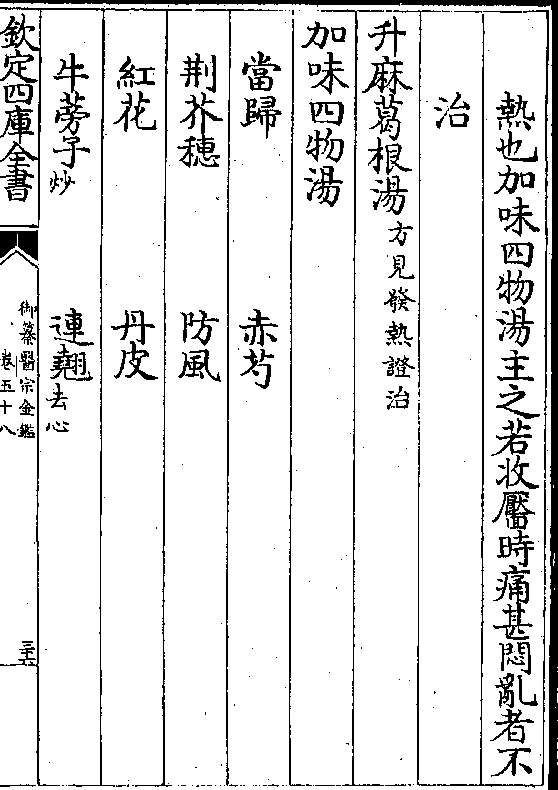 熱也加味四物湯主之若收靨時痛甚悶亂者不
治
升麻葛根湯方見發熱證治
加味四物湯
當歸 赤芍
荆芥穗 防風
紅花 丹皮
牛蒡子炒 連翹去心
欽定四庫全書
御纂醫宗金鑑
卷五十八
三十六